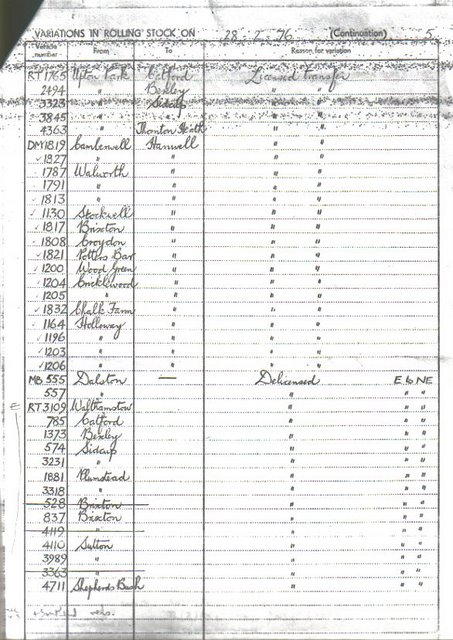 VARIATIONS IN ROLLING STOCK ON 28-2-76 (Continuation) 5
Vehicle number From To Reason for variation
RT1765 Upton Park Catford Licensed transfer
2494 " Bexley " "
3323 " Sidcup " "
3845 " " " "
4363 " Thornton Heath " "
DM1819 Camberwell Hanwell " "
✓1827 " " " "
✓1787 Walworth " " "
1791 " " " "
✓1813 " " " "
✓1130 Stockwell " " "
✓1817 Brixton " " "
✓1808 Croydon " " "
✓1821 Potters Bar " " "
✓1200 Wood Green " " "
✓1204 Cricklewood " " "
1205 " " " "
✓1832 Chalk Farm " " "
✓1164 Holloway " " "
✓1196 " " " "
✓1203 " " " "
✓1206 " " " "
MB 555 Dalston — Delicensed E to NE
557 " " " "
E RT3109 Walthamstow " " "
785 Catford " " "
1373 Bexley " " "
574 Sidcup " " "
3231 " " " "
1881 Plumstead " " "
3318 " " " "
528 Brixton " " "
837 Brixton " " "
4119 " " " "
4110 Sutton " " "
3989 " " " "
3363 " " " "
4711 Shepherds Bush " " "